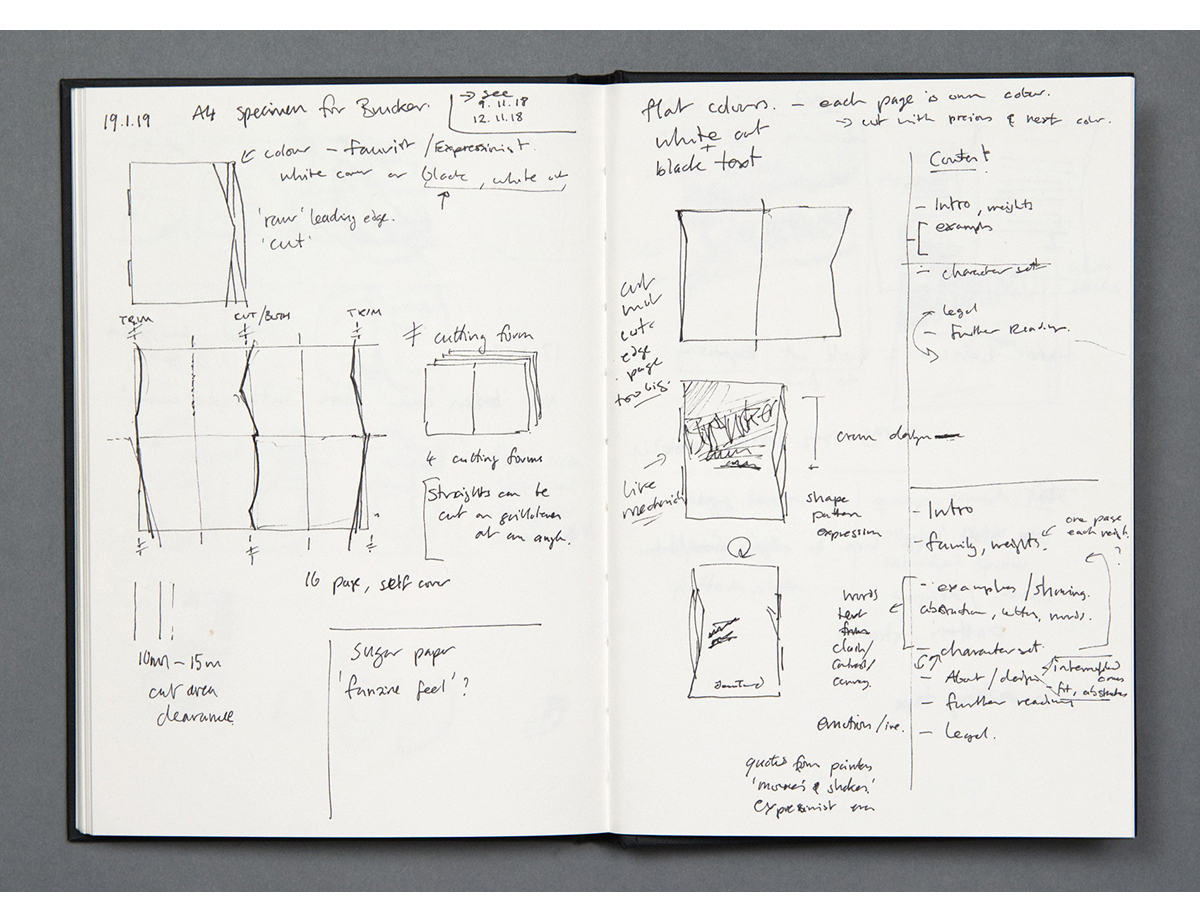 19.1.19
A4 specimen for Brucker.
→ see
9.11.18
12.11.18
← colour – Fauvist / Expressionist.
white cover or black, white cut,
'raw' leading edge.
'cut'
TRIM
CUT/BOTH
TRIM
≠ cutting form
4 cutting forms
Straights can be
cut on guillotine
at an angle.
16 page, self cover
10mm – 15m
cut area
clearance
sugar paper
'fanzine feel'?
flat colours. – each page is own colour.
→ cut with previous & next color.
white cut
+
black text
cut
out
edge
page
too big.
→
like
mechanich
cover design
shape
pattern
expression
words
text
forms
clash/
contrast/
emotion/
quotes from painters
'movers & shakers'
expressionist era
Content
– Intro, weights
examples
– character set
legal
– Further Reading.
– Intro
– family, weights.
← one page
each weight.
?
– examples / showing.
abstraction, letters, words.
– character set.
– About / design
interrupted
– fit, abstractes
– further reading
– Legal.